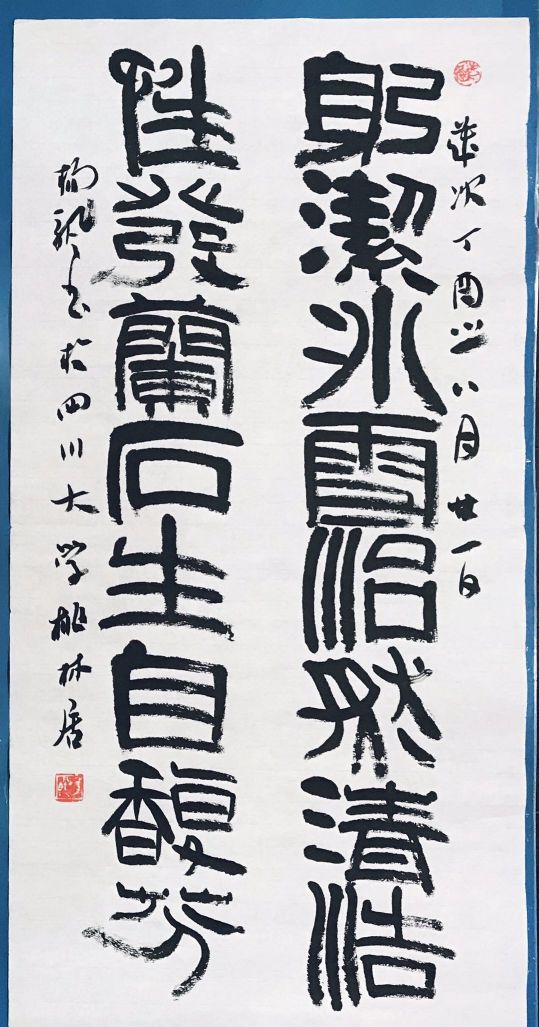 歲次丁酉年八月廿一日
躬潔冰雪洽然清浩
性發蘭石生自馥芬
書於四川大學桃林居